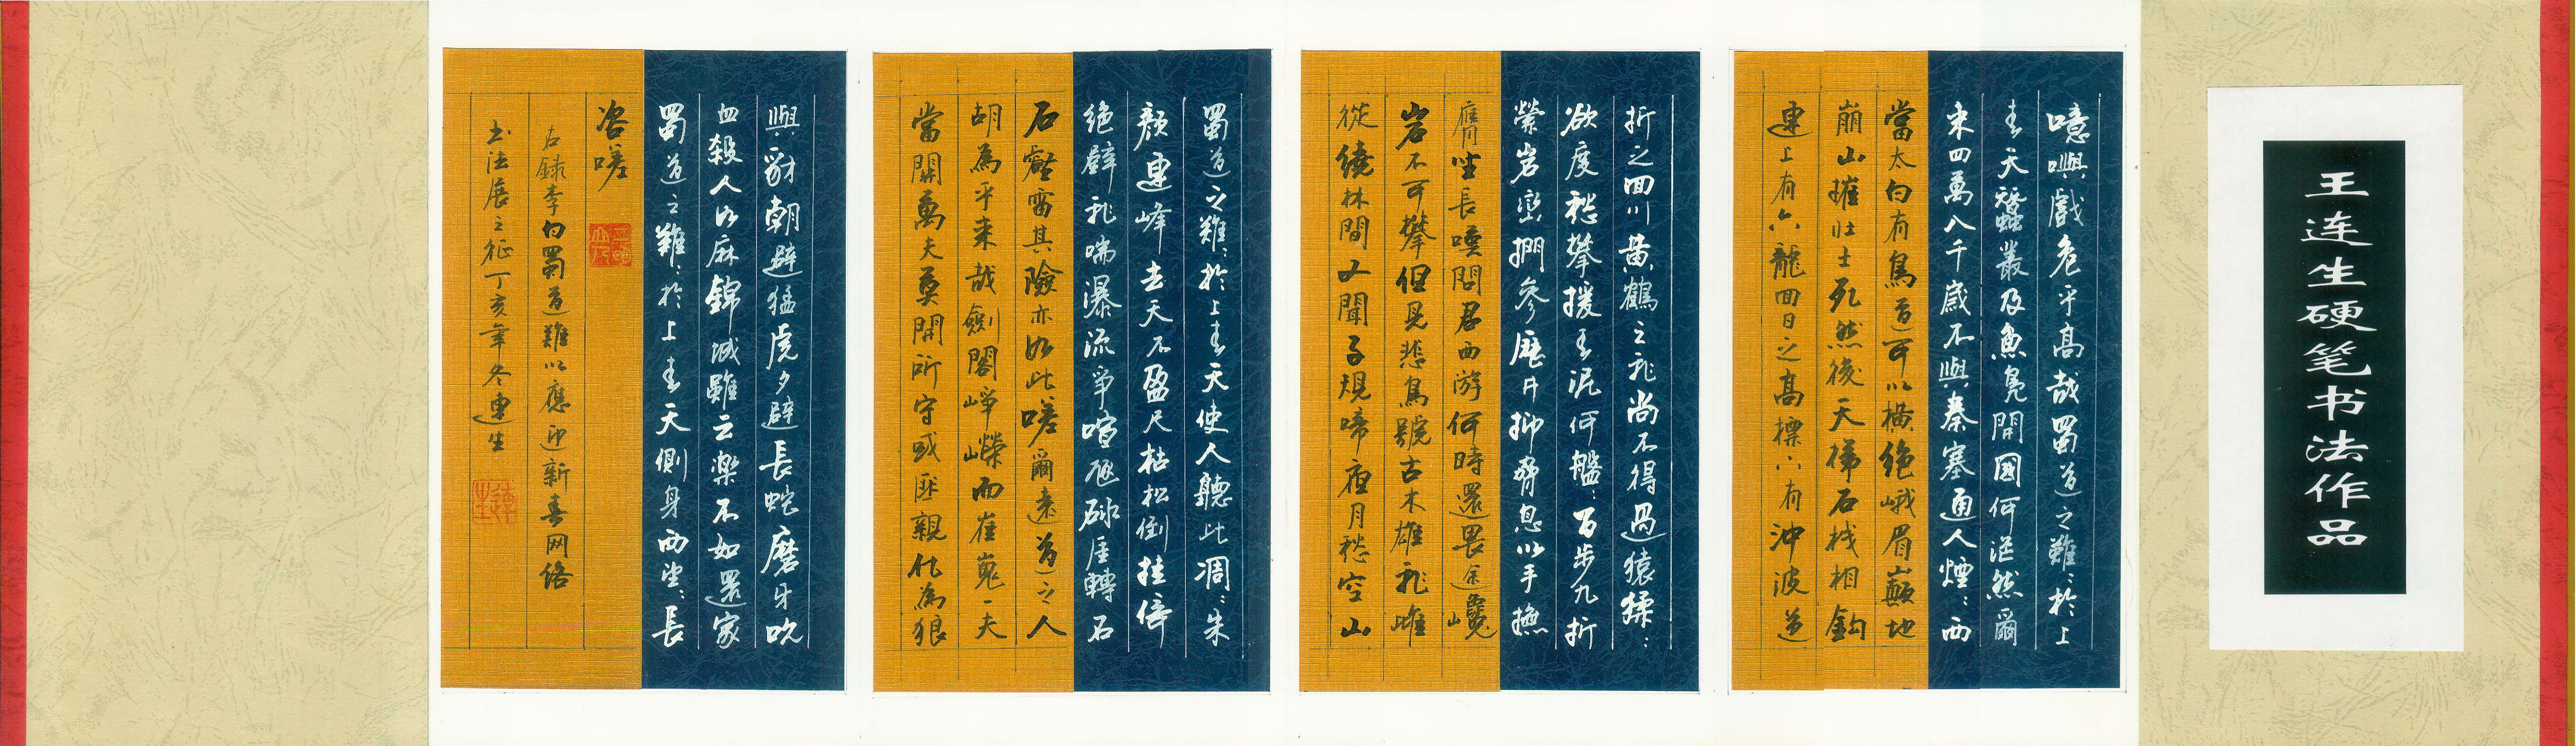 王连生硬笔书法作品
噫嘘戲危乎高哉蜀道之難:於上
青天蠶叢及魚鳧開國何茫然爾
来四萬八千歲不與秦塞通人煙:西
當太白有鳥道可以橫絕峨眉巔地
崩山摧壯士死然後天梯石棧相鈎
連上有六龍回日之高標下有沖波逆
折之回川黃鶴之飛尚不得過猿猱:
欲度愁攀援青泥何盤:百步九折
縈岩巒捫參歷井抑脅息以手撫
膺坐長嘆問君西游何時還畏途巉
岩不可攀但見悲鳥號古木雄飛雌
從繞林間又聞子規啼夜月愁空山
蜀道之難:於上青天使人聽此凋:朱
顏連峰去天不盈尺枯松倒挂倚
絕壁飛喘瀑流爭喧豗砯崖轉石
石壑雷其險亦如此嗟爾遠道之人
胡為乎来哉劍閣崢嶸而崔嵬一夫
當關萬夫莫開所守或匪親化為狼
與豺朝避猛虎夕避長蛇磨牙吮
血殺人如麻錦城雖云樂不如還家
蜀道之難:於上青天側身西望:長
咨嗟
右録李白蜀道難以應迎新春网络
书法展之征丁亥年冬連生